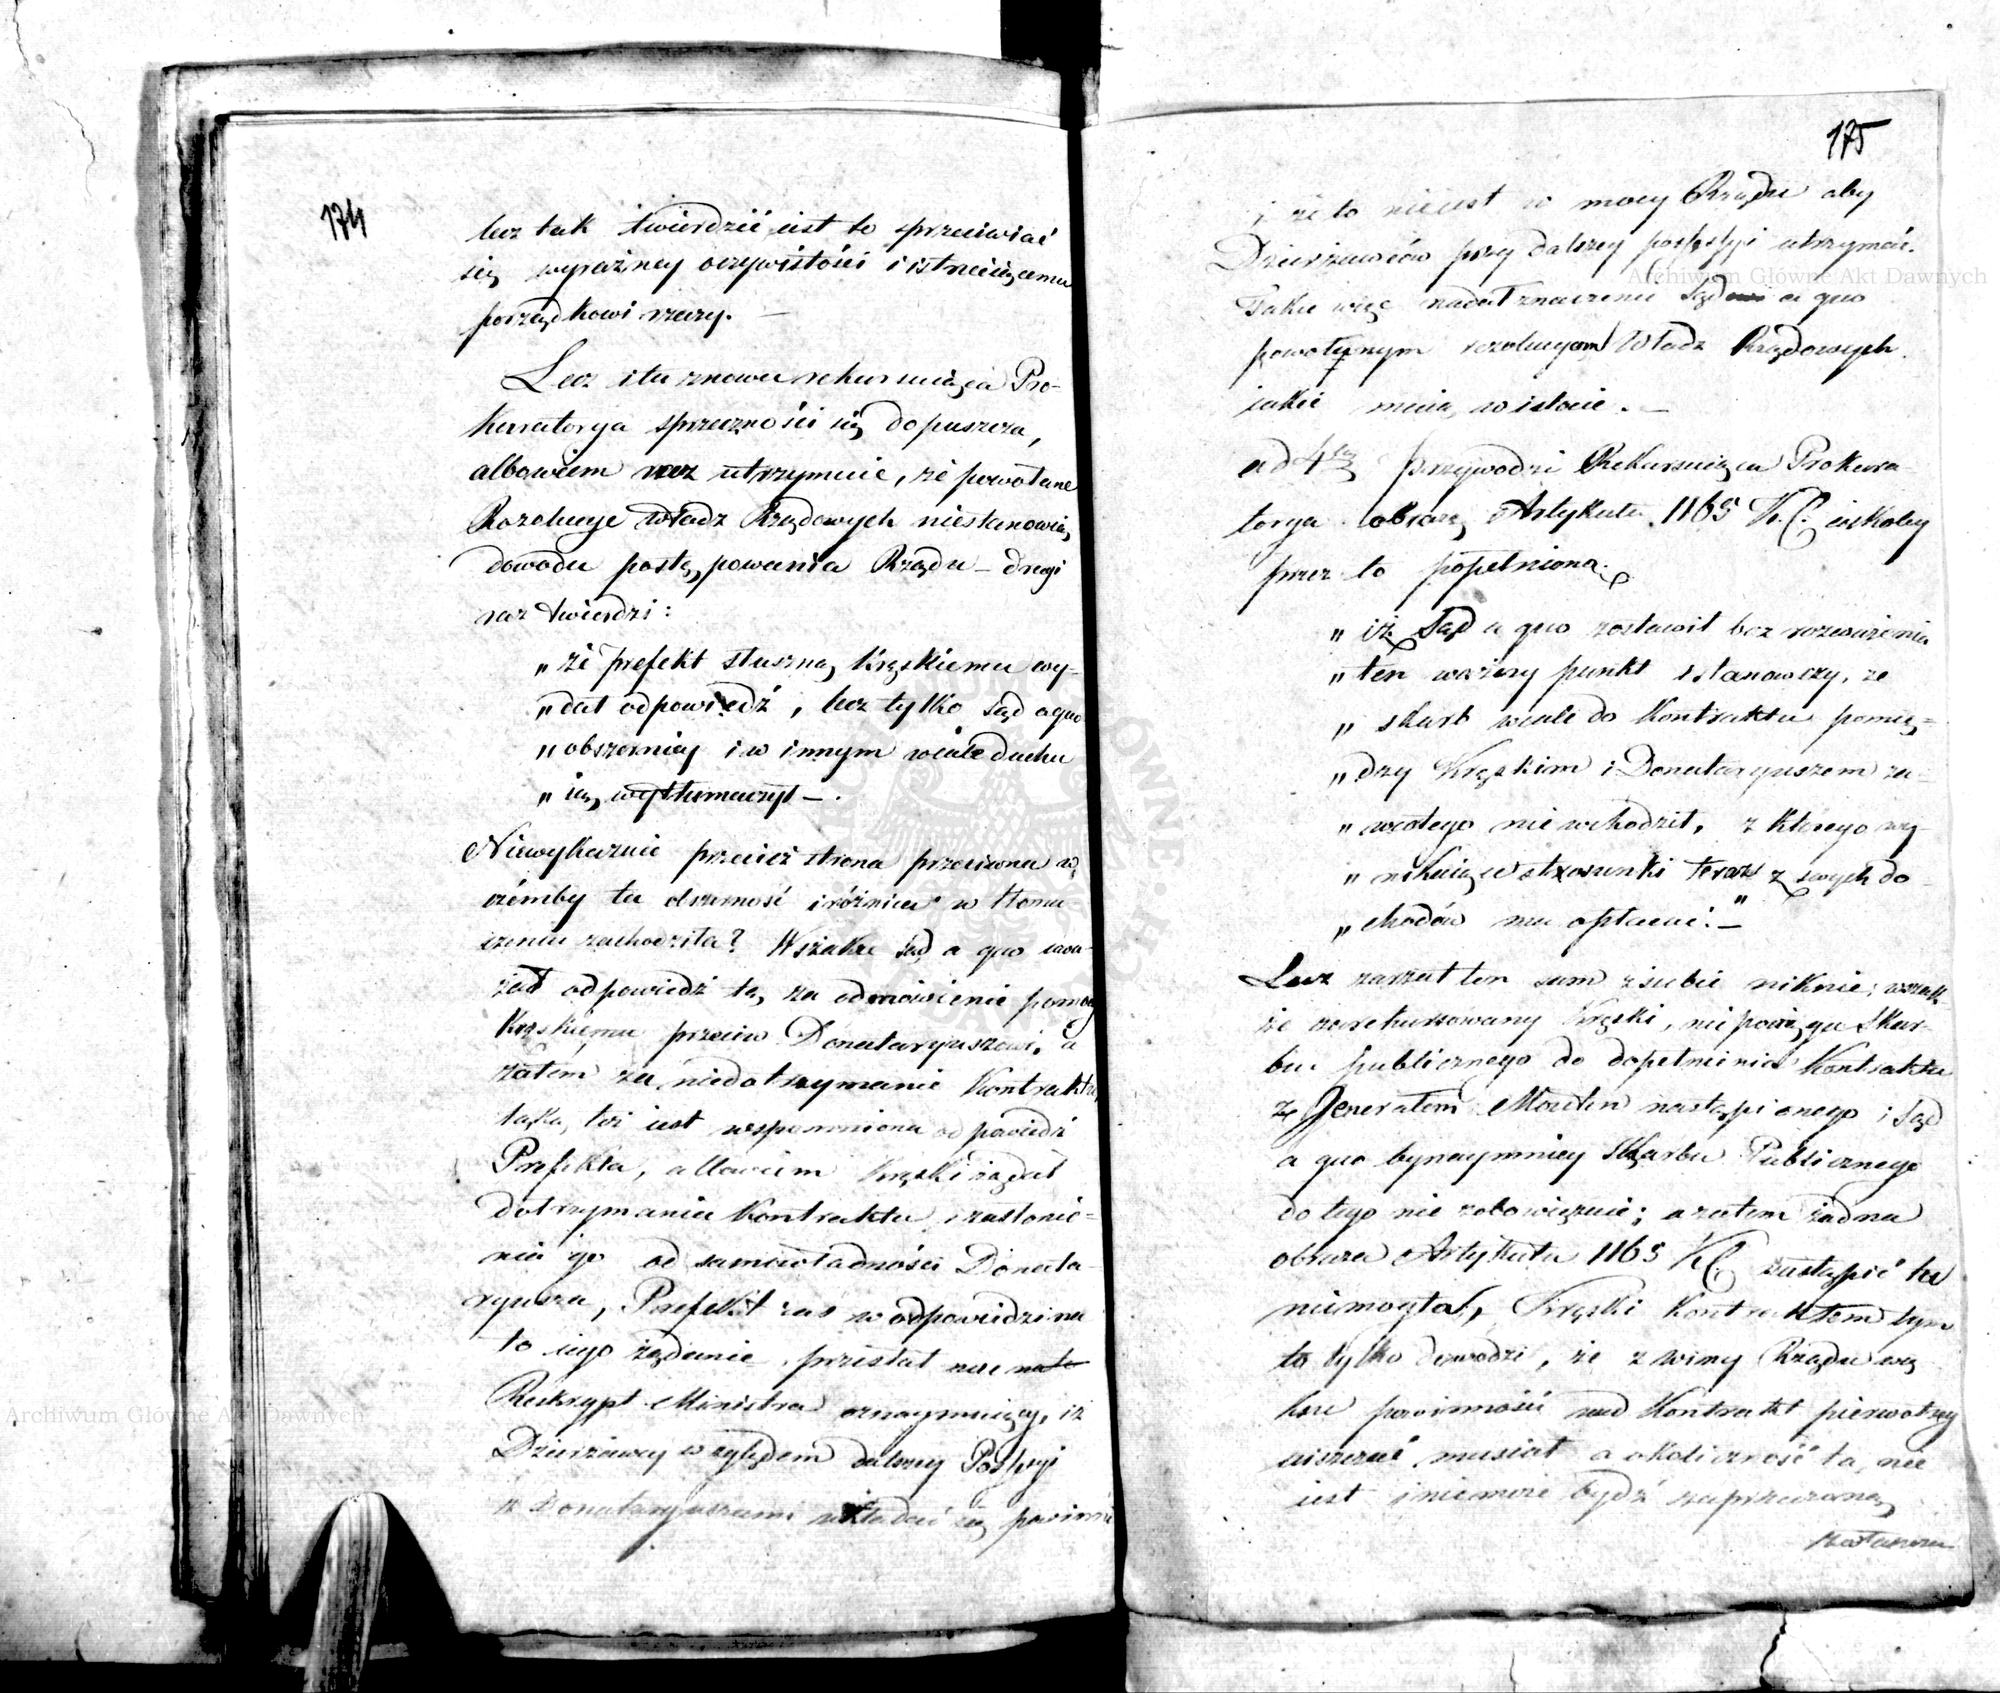 174
lecz tak twierdzić iest to sprzeciwiać
się wyraźney oczywistości i istnieiącemu
porządkowi rzeczy. —
Lecz i tu znowu rekursuiąca Pro-
kuratorya sprzeczności się dopuszcza,
albowiem raz utrzymuie, że powołane
Rozolucye władz Rządowych niestanowią
dowodu postępowania Rządu – drugi
raz twierdzi:
„ że prefekt słuszną Krąskiemu wy-
„ dał odpowiedź, lecz tylko Sąd a quo
„ obszerniey i w innym wcale duchu
„ ią wytłumaczył –.
Niewykazuie przecież strona przeciwna w
czémby ta obszerność i różnica w tłoma-
czeniu zachodziła? Wszakże Sąd a quo uwa-
żał odpowiedź tę, za odmówienie pomocy
Krąskiemu przeciw Donataryuszowi, a
zatém za niedotrzymanie Kontraktu,
taką też iest wspomniona odpowiedź
Prefekta, albowiem Krąski żądał
dotrzymania Kontraktu i zasłonie-
nia go od samowładności Donata-
ryusza, Prefekt zaś w odpowiedzi na
to iego żądanie, przesłał mu
Reskrypt Ministra oznaymuiący, iż
Dzierżawcy względem dalszey Possesyi
z Donataryuszami układać się powinni
175
i że to nieiest w mocy Rządu aby
Dzierżawców przy dalszey possessyi utrzymać.
Takie więc nadał znaczenie Sąd a quo
powołanym rezolucyom Władz Rządowych
iakie maią w istocie. —
ad 4tą przywodzi Rekursuiąca Prokura-
torya obrazę Artykułu 1165 K.C. iakoby
przez to popełnioną.
„ iż Sąd a quo zostawił bez rozważenia
„ ten ważny punkt i stanowczy, że
„ skarb wcale do Kontraktu pomię-
„ dzy Krąskim i Donataryuszem za-
„ wartego nie wchodził, z którego wy-
„ nikaiące stosunki teraz z swych do-
„ chodów ma opłacać. –"
Lecz zarzut ten sam z siebie niknie; wszak-
że zarekursowany Krąski, nie pociąga Skar-
bu publicznego do dopełnienia Kontraktu
z Jenerałem Mouton nastąpionego i Sąd
a quo bynaymniey Skarbu Publicznego
do tego nie zobowiązuie; a zatem żadna
obraza Artykułu 1165 K.C. zastąpić tu
niemogła, Krąski Kontraktem tym
to tylko dowodzi, że z winy Rządu wię-
ksze powinności nad Kontrakt pierwotny
uiszczać musiał a okoliczność ta, nie
iest i niemoże bydź zaprzeczoną